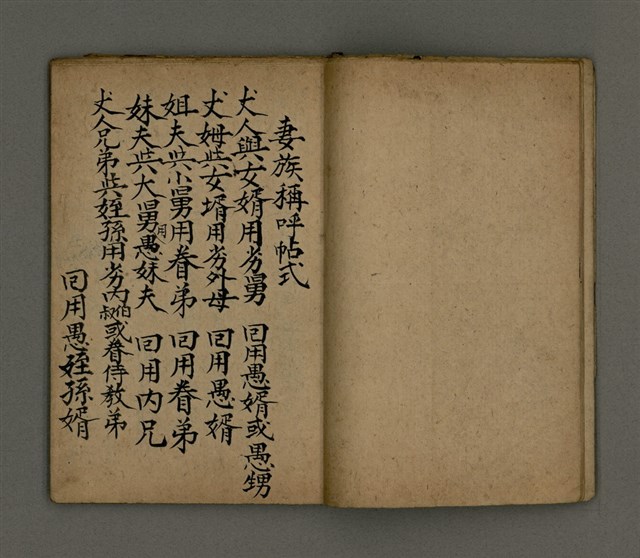 妻族稱呼帖式
丈人與女婿用劣舅　回用愚婿或愚甥
丈姆共女壻用劣外母　回用愚婿
姐夫共小舅用眷弟　回用眷弟
妹夫共大舅用愚妹夫　回用内兄
丈人兄弟共姪孫用劣内伯叔或眷侍教弟
回用愚姪孫婿